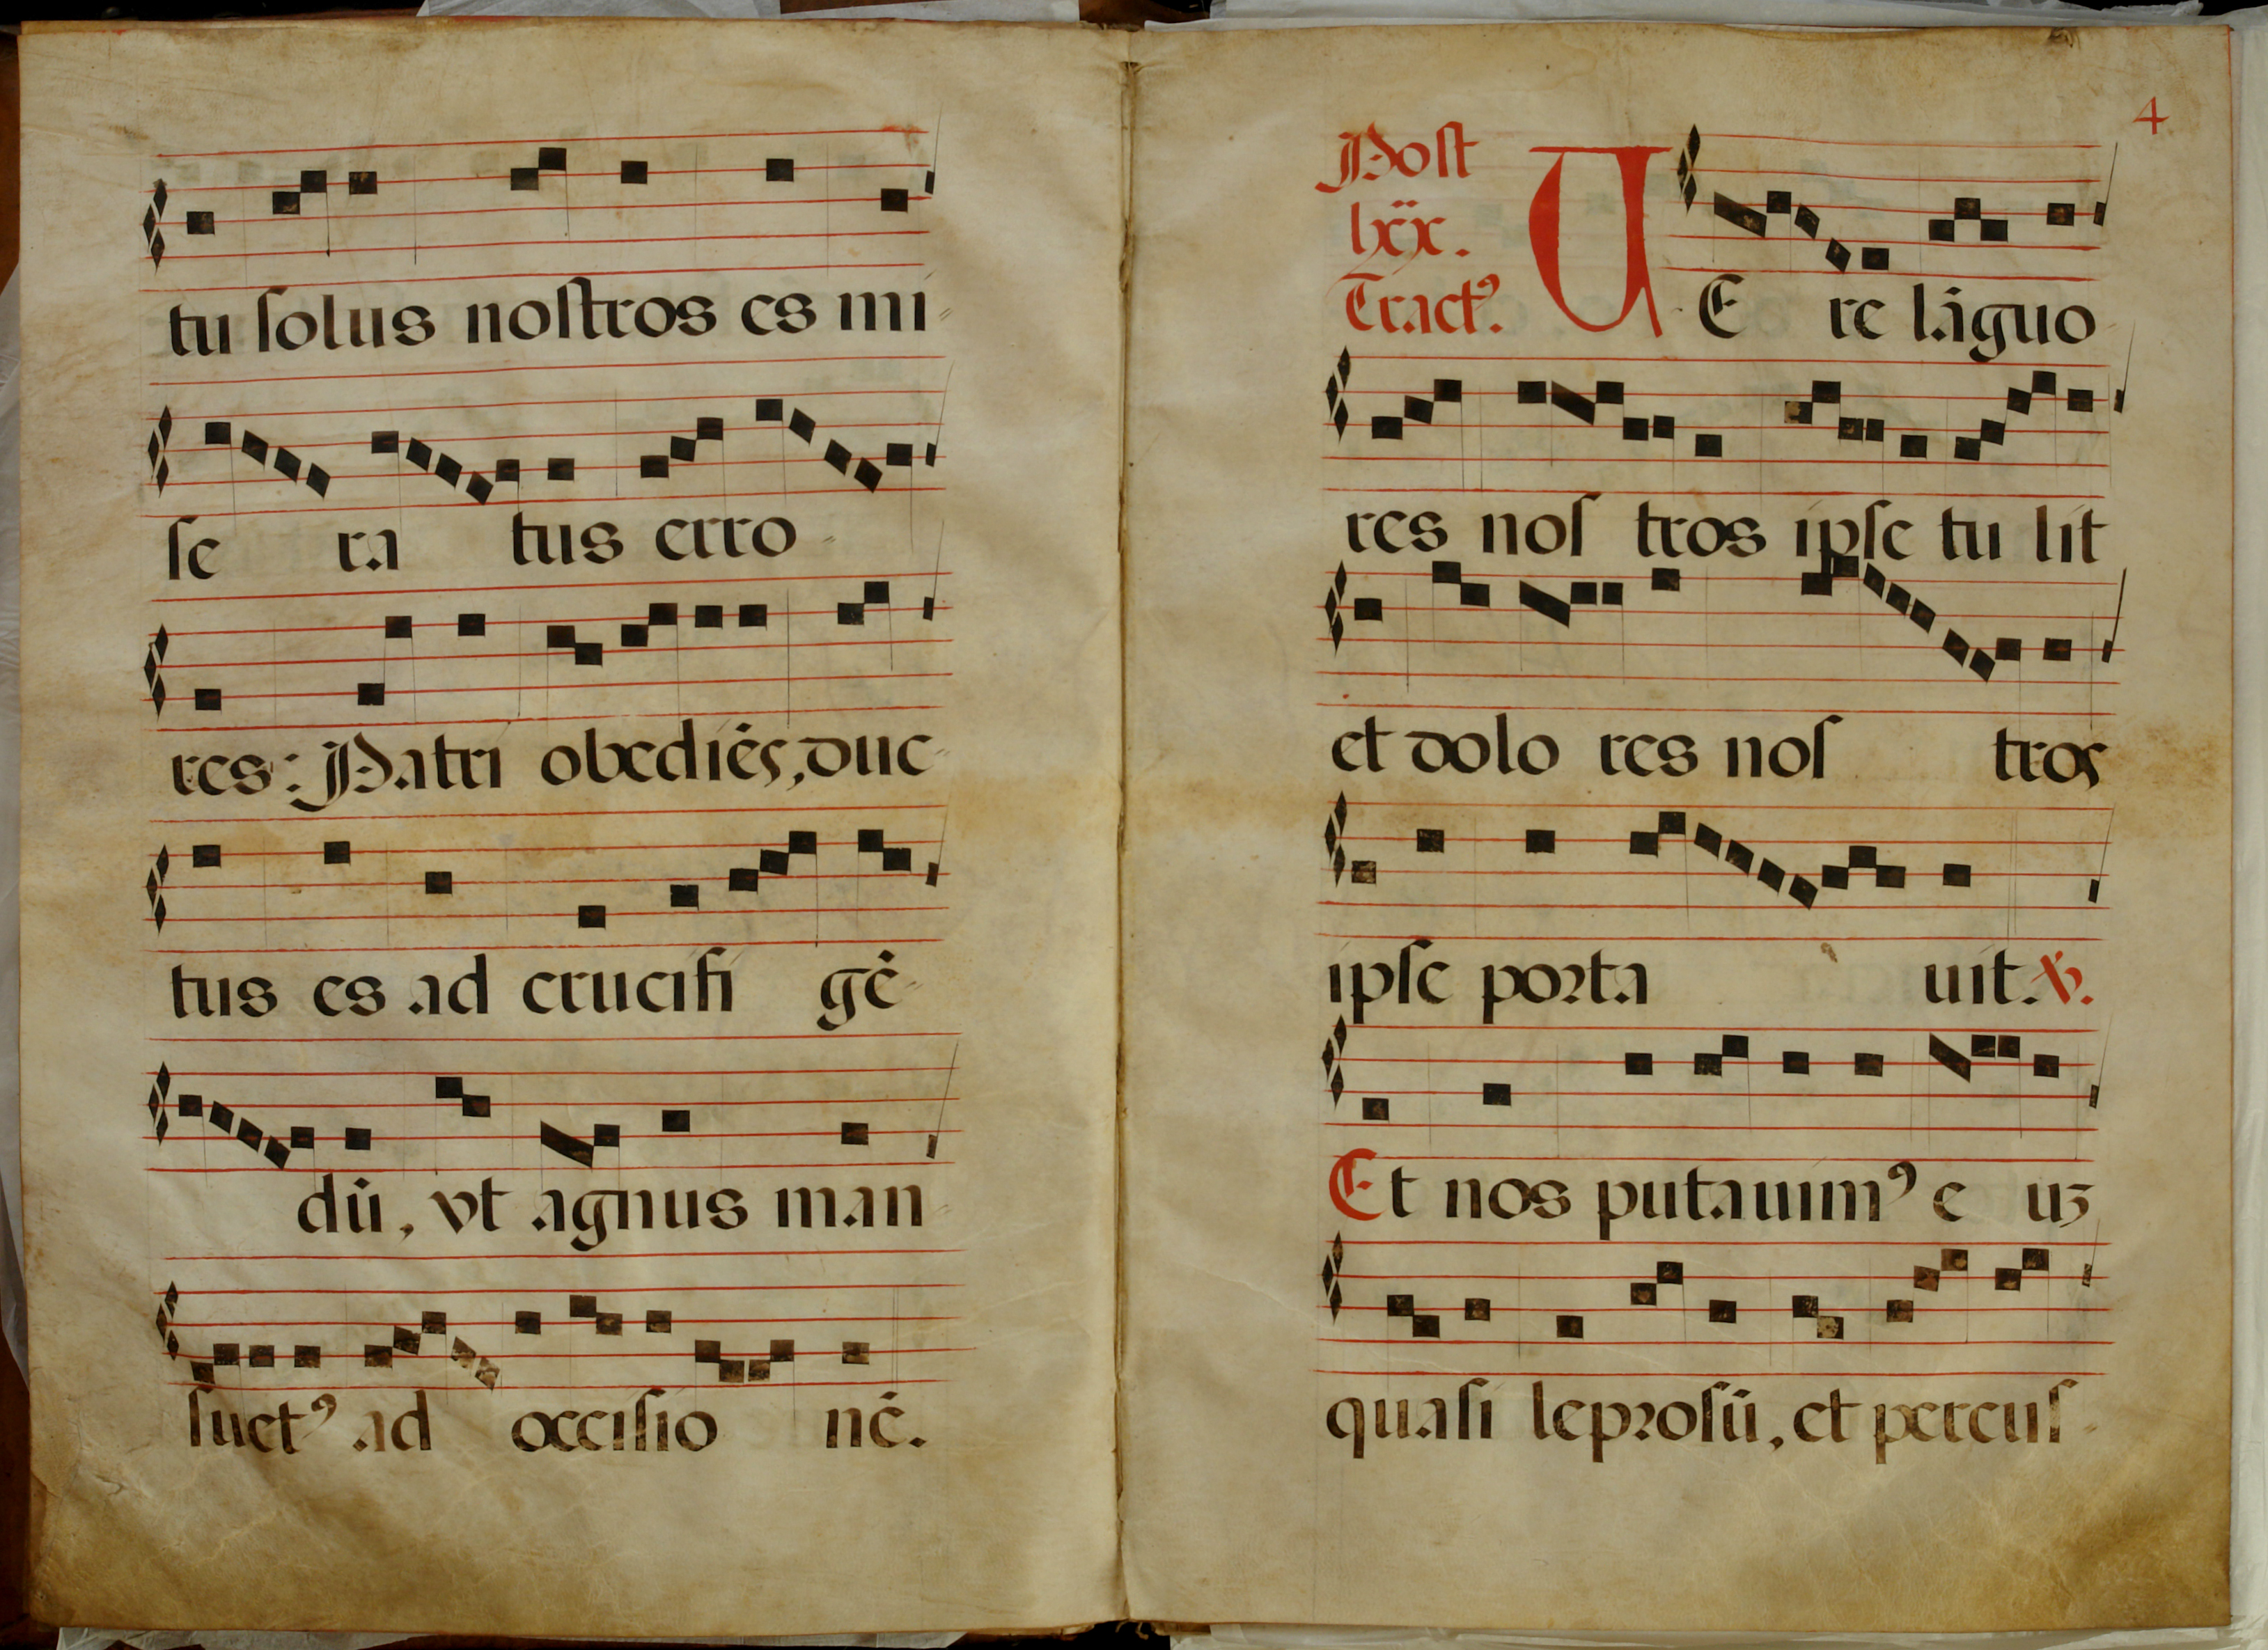 tu ſolus noſtros es mi-
ſe ra tus erro-
res: Patri obediēs, duc-
tus es ad crucifi gē-
dū, vt agnus man
ſuetꝰ ad occiſio nē.
4
Poſt
lxx.
Tractꝰ.
UE re lāguo-
res noſ tros ipſe tu lit
et dolo res noſ tros
ipſe poꝛta uit. ℣.
Et nos putauimꝰ e uꝫ
quaſi lepꝛoſū, et percuſ-